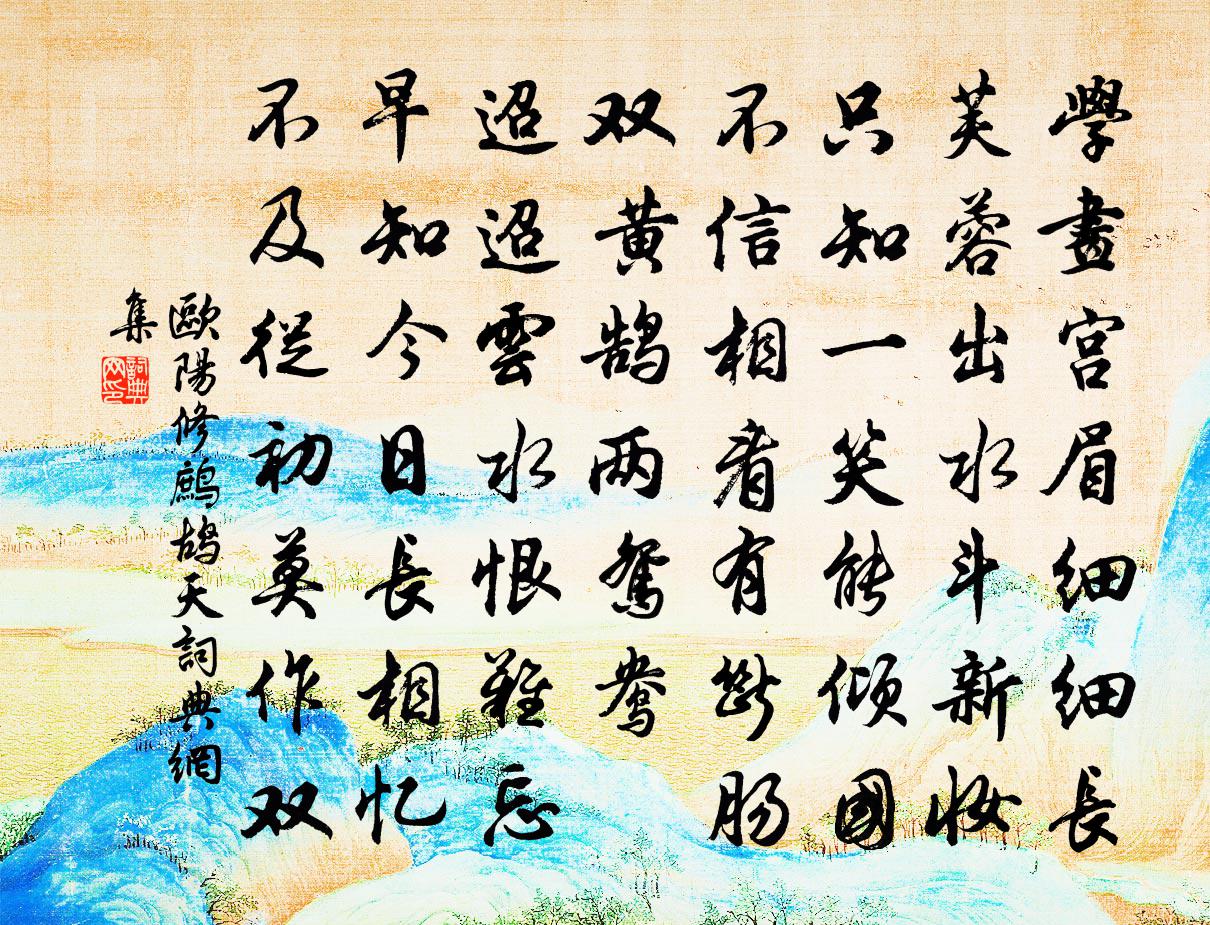 學畫宫眉细细長
芙蓉出水斗新妝
只知一笑能傾國
不信相看有斷腸
双黄鹄两鸳鸯
迢迢雲水恨難忘
早知今日長相忆
不及從初莫作双
歐陽修鷓鸪天詞典網
集
詞典网印